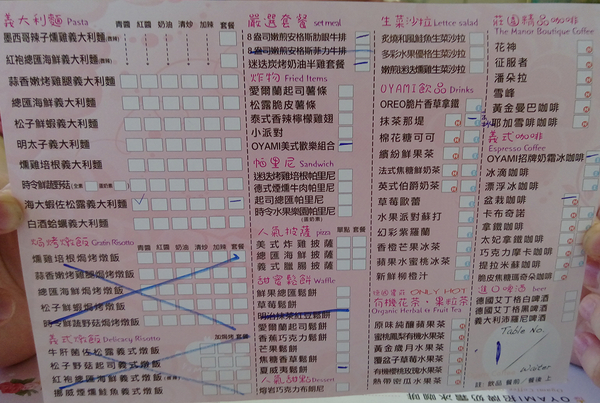 義大利麵 Pasta
青醬 紅醬 奶油 清炒 加辣 套餐
墨西哥辣子燻雞義大利麵(微辣)
紅袍總匯海鮮義大利麵(微辣)
蒜香嫩烤雞腿義大利麵
總匯海鮮義大利麵
松子鮮蝦義大利麵
明太子義大利麵
燻雞培根義大利麵
時令鮮蔬野菇(全素 蛋奶素)
海大蝦佐松露義大利麵
白酒蛤蠣義大利麵
焗烤燉飯 Gratin Risotto
青醬 紅醬 奶油 清炒 加辣 套餐
燻雞培根焗烤燉飯
蒜香嫩烤雞腿焗烤燉飯
總匯海鮮焗烤燉飯
松子鮮蝦焗烤燉飯
時令鮮蔬野菇焗烤燉飯
義式燉飯 Delicacy Risotto
加焗烤 套餐
牛肝菌佐松露義式燉飯
松子野菇起司義式燉飯
紅袍總匯海鮮義式燉飯(微辣)
挪威煙燻鮭魚義式燉飯
嚴選套餐 set meal
8盎司嫩煎安格斯肋眼牛排
8盎司嫩煎安格斯菲力牛排
迷迭炭烤奶油半雞套餐
炸物 Fried Items
愛爾蘭起司薯條
松露脆皮薯條
泰式香辣檸檬雞翅
小派對
OYAMI美式歡樂組合
帕里尼 Sandwich
迷迭烤雞培根帕里尼
德式煙燻牛肉帕里尼
起司總匯帕里尼
時令水果樂園帕里尼
人氣披薩 pizza
單點 套餐
美式炸雞披薩
總匯海鮮披薩
義式臘腸披薩
甜蜜鬆餅 Waffle
鮮果總匯鬆餅
草莓鬆餅
明治抹茶紅豆鬆餅
愛爾蘭起司鬆餅
香蕉巧克力鬆餅
芒果鬆餅
焦糖香草鬆餅
夏威夷鬆餅
人氣甜點 Dessert
熔岩巧克力布朗尼
生菜沙拉 Lettce salad
炙燒和風鮭魚生菜沙拉
多彩水果優格生菜沙拉
嫩煎迷迭燻雞生菜沙拉
OYAMI飲品 Drinks
OREO脆片香草拿鐵
抹茶那堤
棉花糖可可
繽紛鮮果茶
法式焦糖鮮奶茶
英式伯爵奶茶
草莓歐蕾
水果派對蘇打
幻彩紫羅蘭
香橙芒果冰茶
蘋果水蜜桃冰茶
新鮮柳橙汁
ONLY HOT
有機花茶·果粒茶
Organic Herbal & Fruit Tea
原味純釀蘋果茶
蜜桃鳳梨有機水果茶
黃金歲月水果茶
覆盆子草莓水果茶
有機櫻桃玫瑰水果茶
熱帶密瓜水果茶
莊園精品咖啡
The Manor Boutique Coffee
花神
征服者
潘朵拉
雪峰
黃金曼巴咖啡
耶加雪啡咖啡
義式咖啡
Espresso Coffee
OYAMI招牌奶霜冰咖啡
冰滴咖啡
漂浮冰咖啡
盆栽咖啡
卡布奇諾
拿鐵咖啡
太妃拿鐵咖啡
巧克力摩卡咖啡
提拉米蘇咖啡
脆皮焦糖瑪奇朵咖啡
進口啤酒 beer
德國艾丁格白啤酒
德國艾丁格黑啤酒
義大利沛羅尼啤酒
Table No.
1
Waiter
註: 飲品 餐前/餐後 上